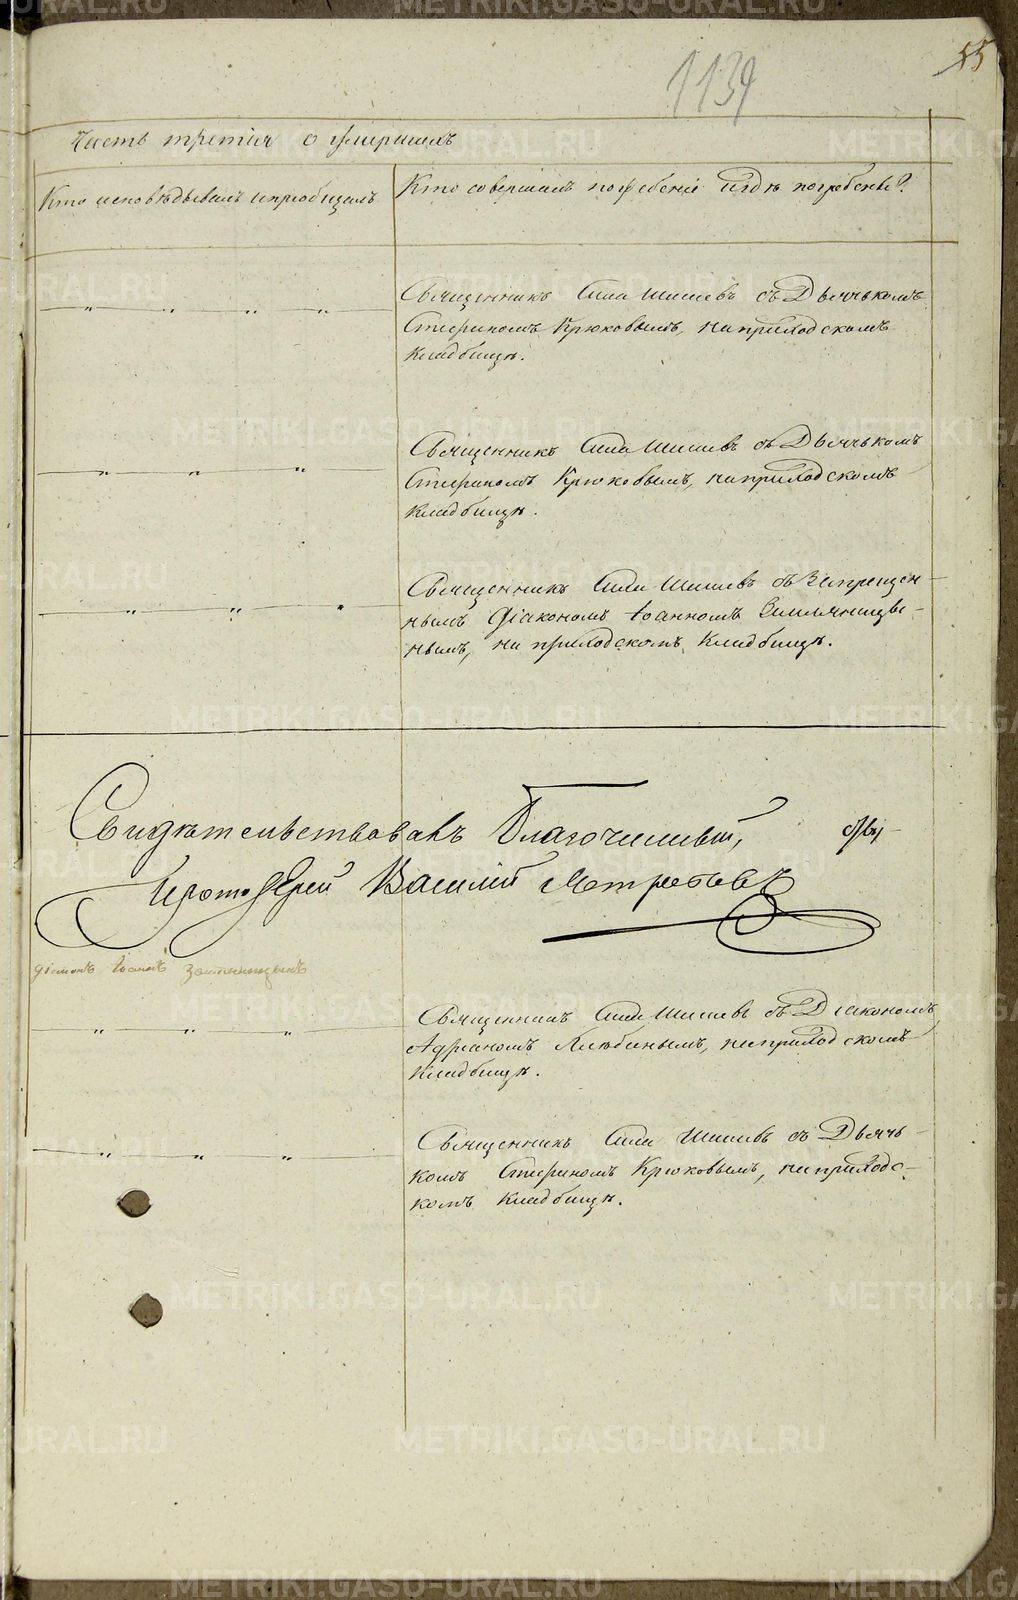 METRIKI.GASO-URAL.RU
1139
55
Часть третія о умершихъ
Кто исповѣдывалъ и пріобщалъ
Кто совершалъ погребеніе и гдѣ погребены?
Священникъ Сила Шишевъ съ Дьячькомъ
Стефаномъ Крюковымъ, на приходскомъ
кладбищѣ.
Священникъ Сила Шишевъ съ Дьячькомъ
Стефаномъ Крюковымъ, на приходскомъ
кладбищѣ.
Священникъ Сила Шишевъ съ Запрещен-
нымъ Діакономъ Іоанномъ
нымъ, на приходскомъ кладбищѣ.
Свидѣтельствовалъ Благочинный,
Протоіерей Василій
діаконъ Іоаннъ
Священникъ Сила Шишевъ съ Діакономъ
Адріаномъ Любинымъ, на приходскомъ
кладбищѣ.
Священникъ Сила Шишевъ съ Дьячь-
комъ Стефаномъ Крюковымъ, на приходс-
комъ кладбищѣ.